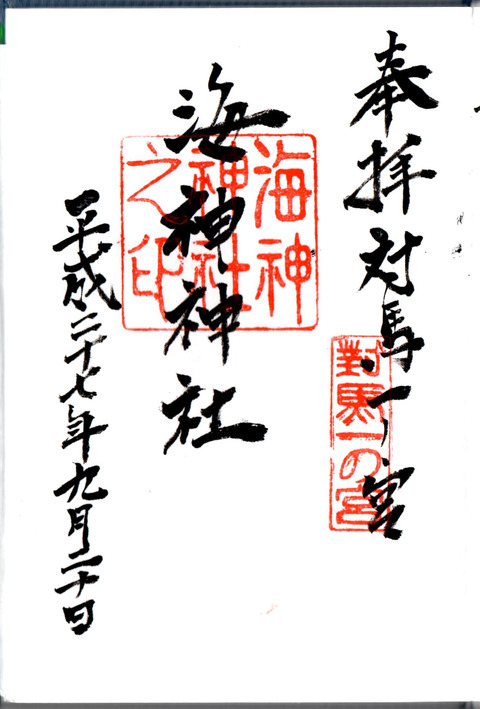 奉拝 対馬一ノ宮
對馬一の宮
海神神社
海神
神社
之印
平成二十七年九月二十日